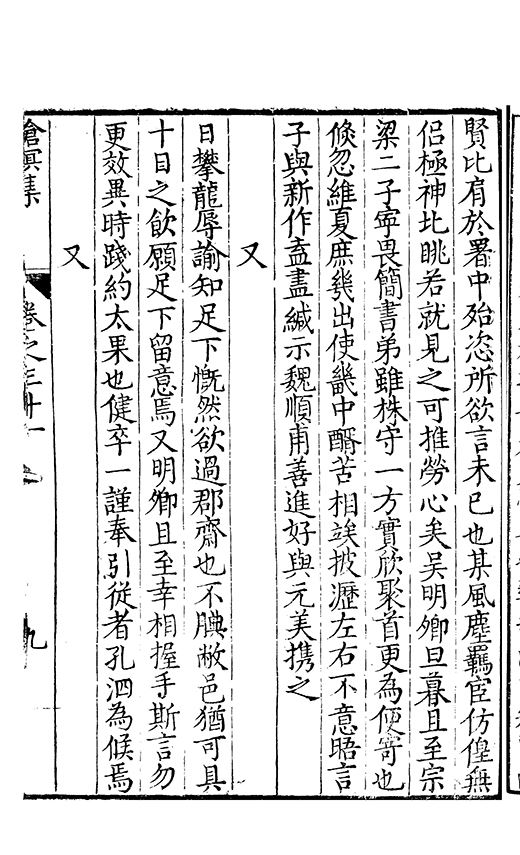 賢比肩於署中殆恣所欲言未已也某風塵羈宦仿偟無
侶極神比眺若就見之可推勞心矣吳明卿旦暮且至宗
梁二子寧畏簡書弟雖株守一方實欣聚首更為便哥也
倐忽維夏庶幾出使畿中酳苦相竢披瀝左右不意晤言
子與新作盍盡緘示魏順甫善進好與元美携之
又
日攀龍辱諭知足下慨然欲過郡齋也不腆敝邑猶可具
十日之飲願足下留意焉又明卿且至幸相握手斯言勿
更效異時踐約太果也健卒一謹奉引従者孔泗為候焉
又
滄溟集
卷之三十一
九